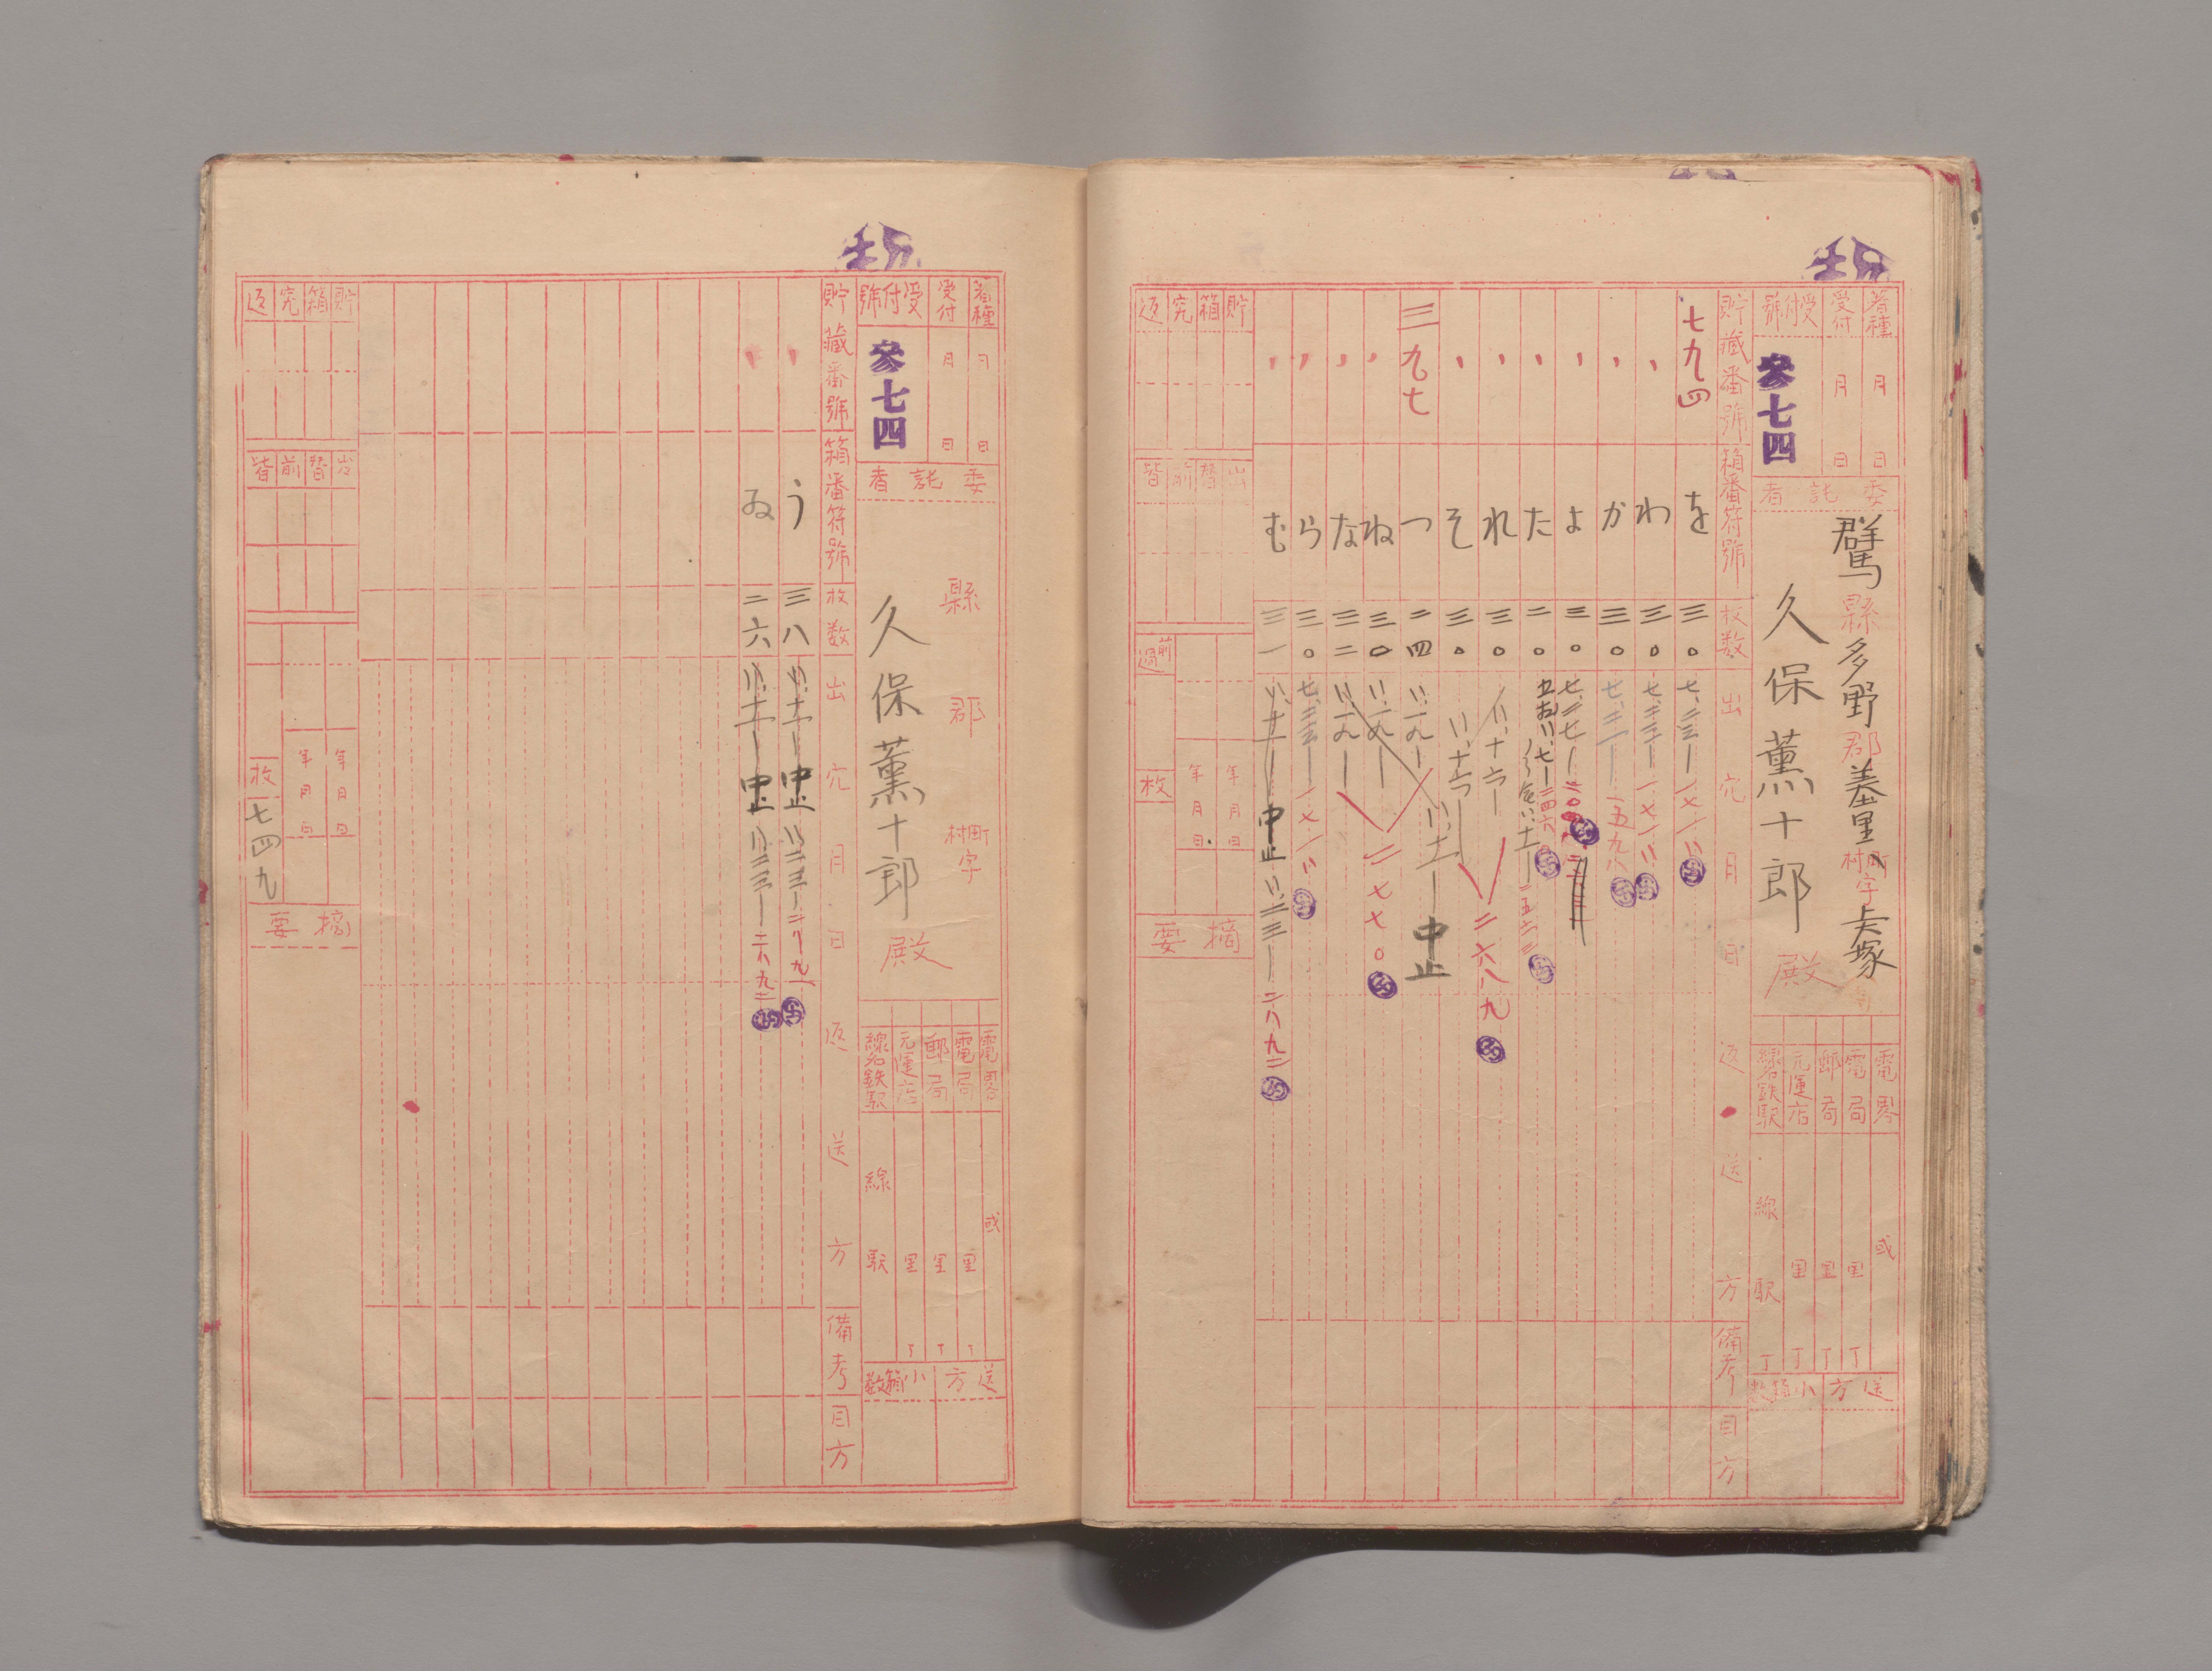 蚕種
月
日
受付
月
日
受付號
参七四
委託者
群馬縣多野郡美里町村字大塚
久保薫十郎殿
電畧
或
電局
里
丁
郵局
里
丁
元運店
里
丁
線名鉄駅
線
駅
丁
送方
小箱数
貯藏番號
箱番符號
枚数
出穴月日
返送方
備考
目方
七九四
を
三〇
七、二三ー
一七一八
〃
わ
三〇
七、二三ー
一七一八
〃
か
三〇
七、二一ー
一五九八
〃
よ
三〇
七、二七ー
〃
た
二〇
二五六三
〃
れ
三〇
八、十六ー
〃
そ
三〇
八、十六ー
二六八九
三九七
つ
二四
八、一八ー
八、十一ー
中止
〃
ね
三〇
八、一八ー
二七七〇
〃
な
三二
八、一八ー
〃
ら
三〇
七、二三ー
一七一八
〃
む
三一
八、十一ー
中止
八、二三ー
二八九二
貯箱究返
出替前皆
前過
年月日
年月日
枚
摘要
蚕種
月
日
受付
月
日
受付號
参七四
委託者
縣
郡
町村
字
久保薫十郎殿
電畧
或
電局
里
丁
郵局
里
丁
元運店
里
丁
線名鉄駅
線
駅
送方
小箱数
貯藏番號
箱番符號
枚数
出穴月日
返送方
備考
目方
〃
う
三八
八、十一ー
中止
八、二三ー
二八九一
〃
ゐ
二六
八、十一ー
中止
八、二三ー
二八九二
貯箱究返
出替前皆
年月日
年月日
枚
七四九
摘要